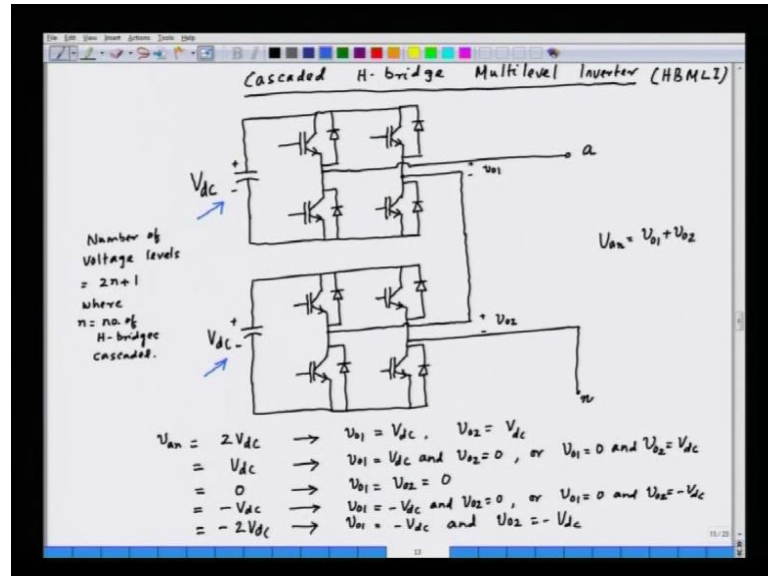 File Edit View Insert Actions Tools Help
Cascaded H-bridge Multilevel Inverter (HBMLI)
a
+
Vdc
-
+
v01
-
Number of
voltage levels
= 2n+1
where
n= no. of
H-bridges
cascaded.
Van = V01 + V02
+
Vdc
-
+
V02
-
n
Van = 2Vdc → V01 = Vdc, V02 = Vdc
= Vdc → V01 = Vdc and V02=0, or V01=0 and V02=Vdc
= 0 → V01 = V02 = 0
= -Vdc → V01 = -Vdc and V02=0, or V01=0 and V02=-Vdc
= -2Vdc → V01 = -Vdc and V02 = -Vdc
13
13/23